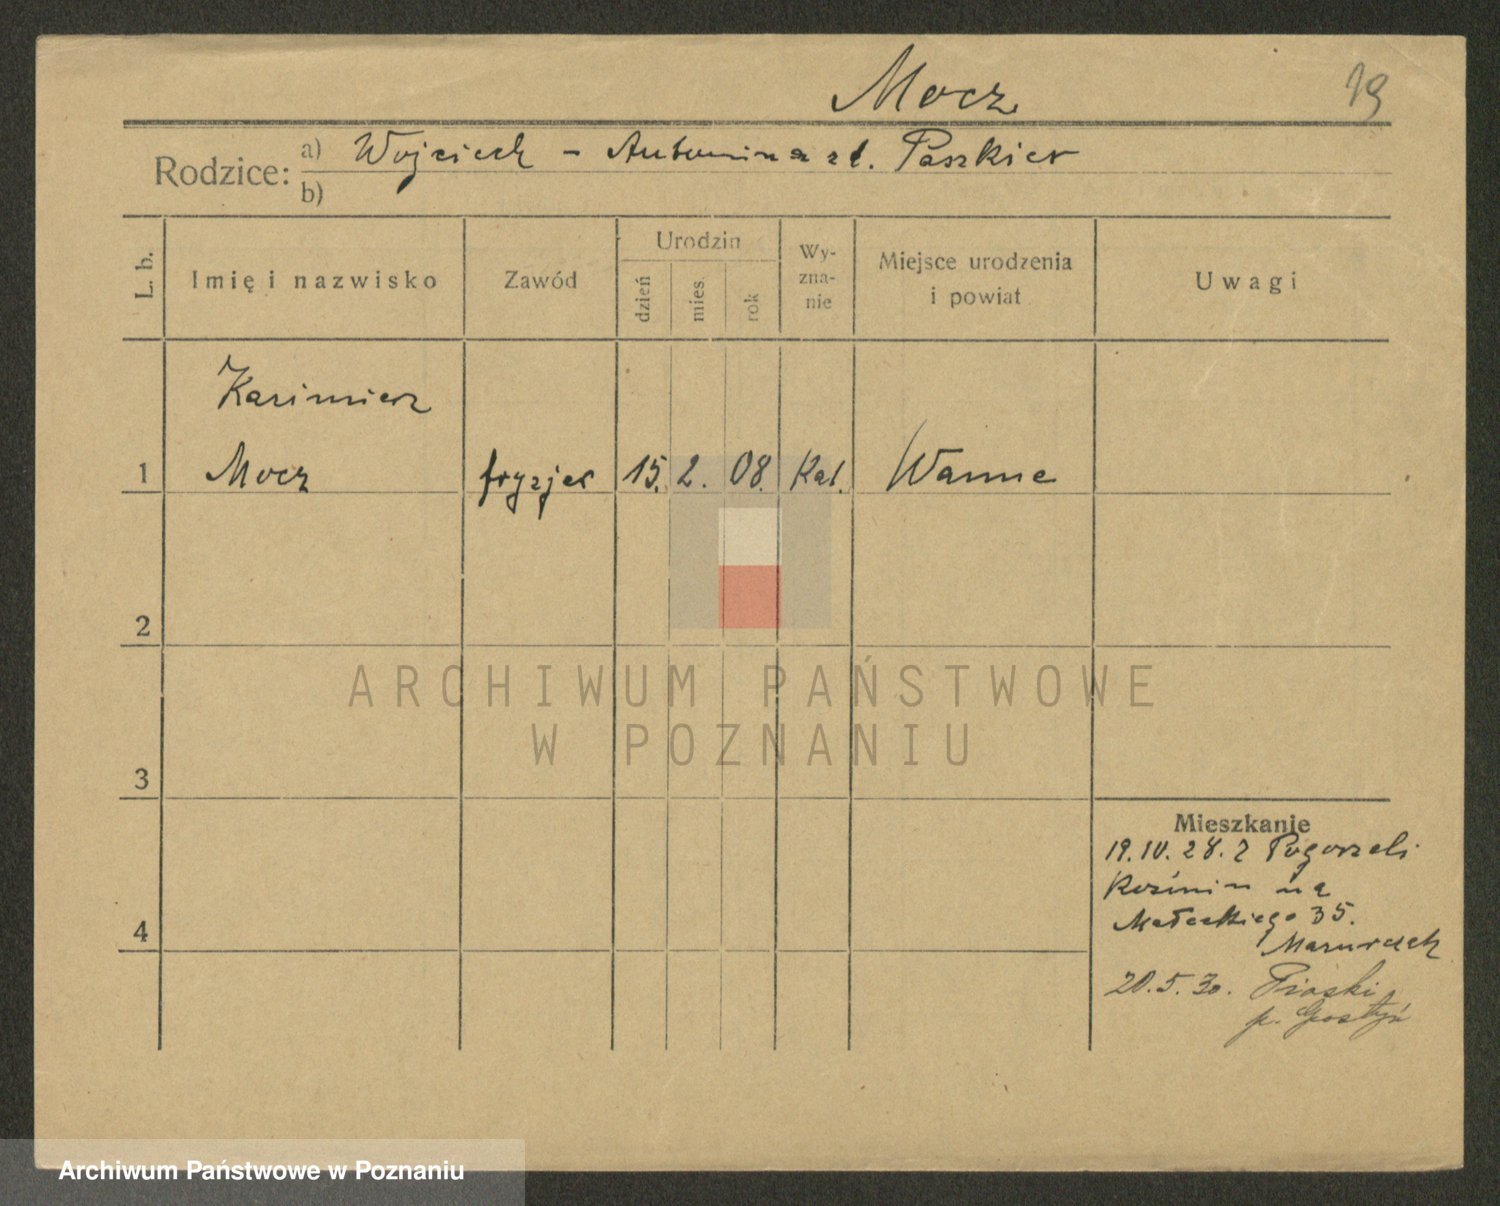 Mocz
19
Rodzice:
a) Wojciech – Antonina zd. Paszkier
b)
L. b.
Imię i nazwisko
Zawód
Urodzin
dzień
mies.
rok
Wy-
zna-
nie
Miejsce urodzenia
i powiat
Uwagi
Kazimierz
1 Mocz fryzjer 15. 2. 08. Kat. Wanne
2
ARCHIWUM PAŃSTWOWE
W POZNANIU
3
Mieszkanie
19.10.28. z Pogorzeli
Koźmin na
4
Małeckiego 35.
Mazurczak
20.5.30. Piaski
p. Gostyń
Archiwum Państwowe w Poznaniu